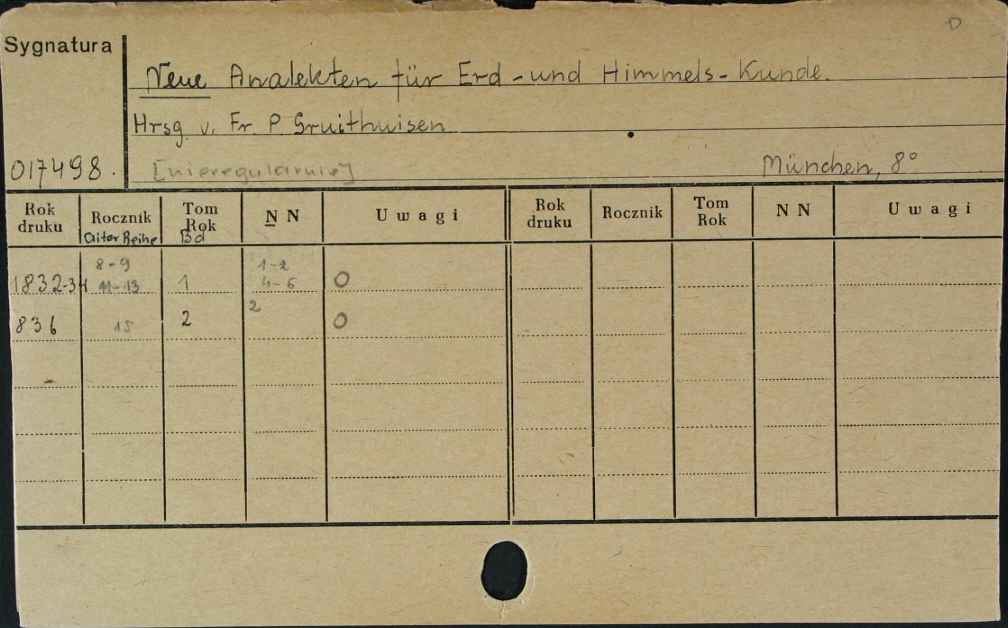 D
Sygnatura
Neue Analekten für Erd-und Himmels-Kunde.
Hrsg. v. Fr. P. Gruithuisen
017498. [nieregularnie] München, 8°
Rok druku Rocznik Tom Rok N N Uwagi Rok druku Rocznik Tom Rok N N Uwagi
Alter Reihe Bd
8-9 1-2
1832-34 11-13 1 4-6 0
2
836 15 2 0